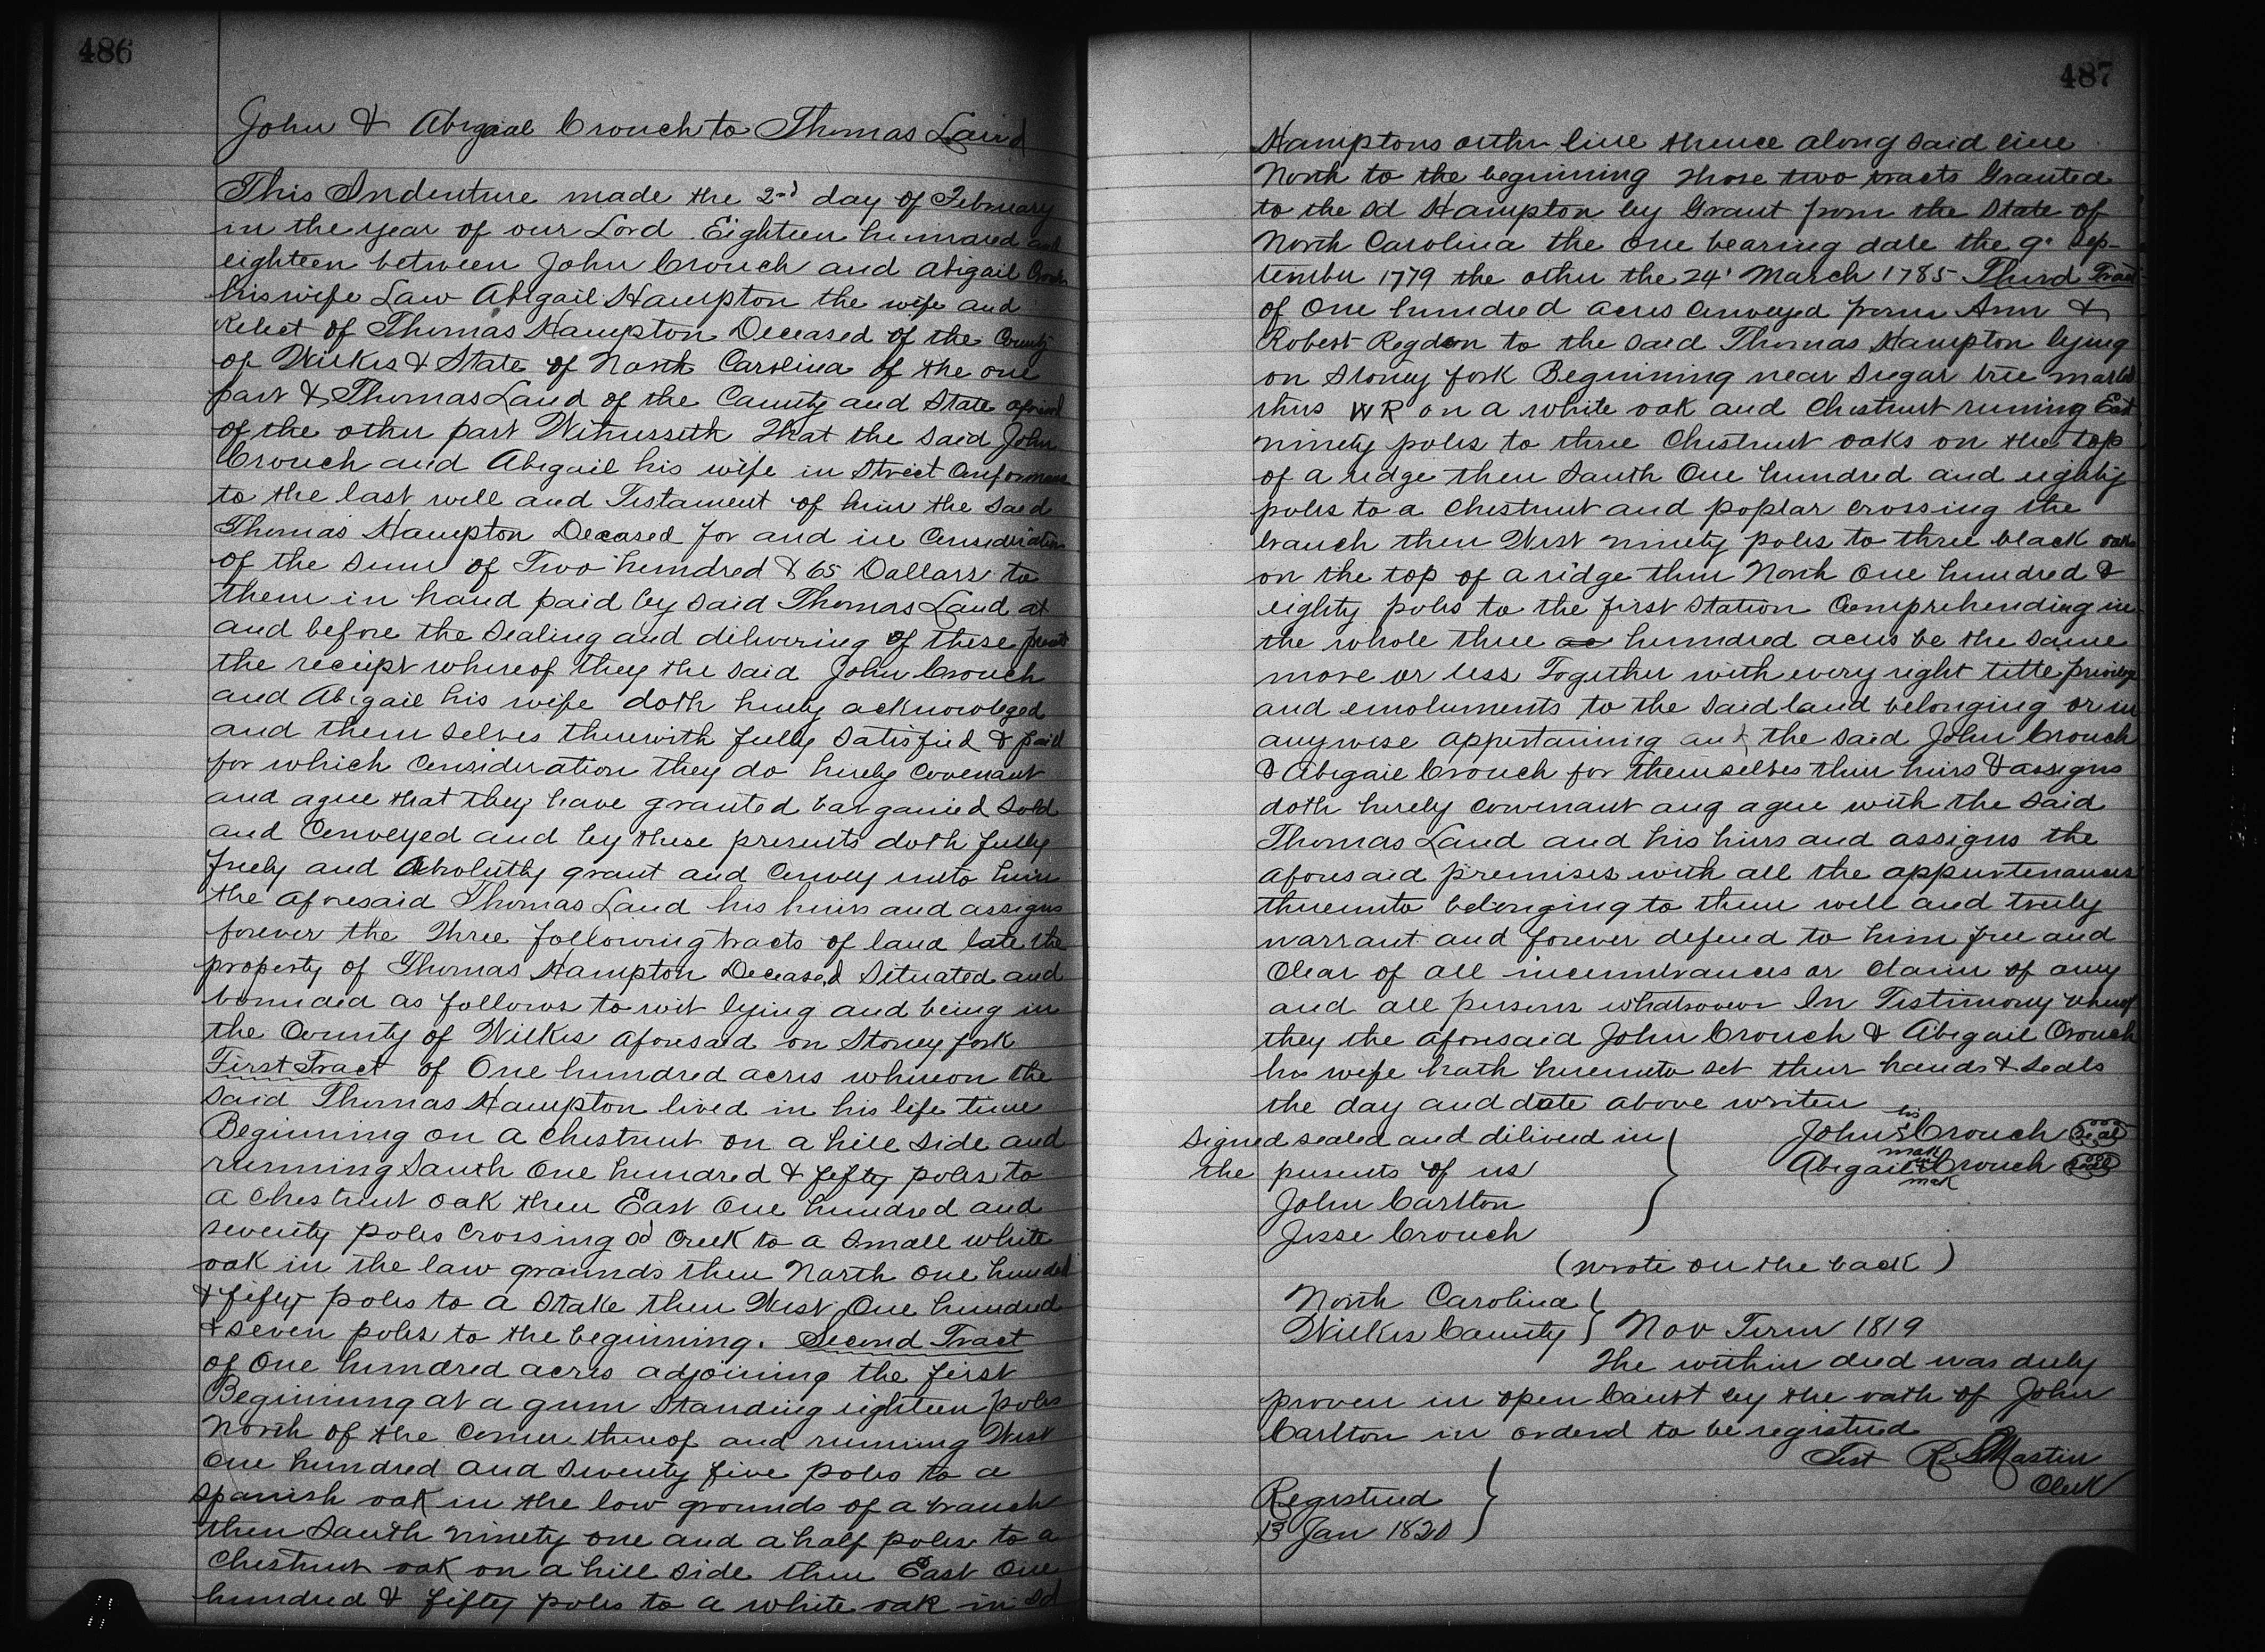 486
John & Abigaial Crouch to Thomas Laird
This Indenture made the 2nd day of February
in the year of our Lord Eighteen hunndred and
eighteen between John Crouch and Abigail Crouch
his wife Law Abigail Hampton the wife and
Relict of Thomas Hampton Deceased of the County
of Wilkes & State of North Carolina of the one
part & Thomas Land of the County and State aforsd
of the other part Witnesseth that the said John
Crouch and Abigail his wife in Strect Conformance
to the last will and Testament of him the said
Thomas Hampton Deceased for and in Consideration
of the sum of Two hundred & 65 Dollars to
them in hand paid by said Thomas Land at
and before the sealing and delivering of these prest
the reciept whereof they the said John Crouch
and Abigail his wife doth hereby acknowleged
and them selves therewith fully satisfied & paid
for which Consideration they do hereby Covenant
and agree that they have granted barganied sold
and Conveyed and by these presents doth fully
freely and Absolutly grant and Convey unto him
the aforesaid Thomas Land his heirs and assigns
forever the three following tracts of land late the
property of Thomas Hampton Deceased Situated and
bounded as follows to wit lying and being in
the County of Wilkes aforesaid on Stoney fork
First Tract of One hundred acres whereon the
said Thomas Hampton lived in his life time
Beginning on a chestnut on a hill side and
running South One hundred & fifty poles to
a Chestnut oak then East One hundred and
seventy poles Crossing sd Creek to a small white
oak in the law grounds then North one hundred
& fifty poles to a Stake then West One hundred
& seven poles to the beginning. Second Tract
of One hundred acres adjoining the first
Beginning at a gum standing eighteen poles
North of the Corner thereof and running West
One hundred and seventy five poles to a
spanish oak in the low grounds of a branch
then South ninety one and a half poles to a
Chestnut oak on a hill side then East One
hundred & fifty poles to a white oak in sd
487
Hamptons other line thence along said line
North to the beginning those two tracts Granted
to the sd Hampton by Grant from the State of
North Carolina the One bearing date the 9. Sep-
tember 1779 the other the 24' March 1785 Third Tract
of One hundred acres Conveyed from Ann &
Robert Regdon to the said Thomas Hampton lying
on Stoney fork Beginning near Sugar tree marked
thus WR on a white oak and Chestnut runing East
ninety poles to three Chestnut oaks on the top
of a ridge then South One hundred and eighty
poles to a Chestnut and poplar crossing the
branch then West ninety poles to three black oaks
on the top of a ridge then North One hundred &
eighty poles to the first Station Comprehending in
the whole three ac hundred acres be the same
more or less Together with every right title privilege
and emoluments to the said land belonging or in
anywise appertaining and the said John Crouch
& Abigail Crouch for themselves their heirs & assigns
doth hereby covenant ang agree with the said
Thomas Land and his heirs and assigns the
aforesaid premises with all the appurtenances
thereunto belonging to them well and truly
warrant and forever defend to him free and
Clear of all incumbrances or claim of any
and all persons whatsoever In Testimony whereof
they the aforesaid John Crouch & Abigail Crouch
his wife hath hereunto set their hands & seals
the day and date above writen
Signed sealed and delivered in
the presents of us
John Carlton
Jesse Crouch
his
John Crouch Seal
mak
Abigail Crouch Seal
mak
(wrote on the back)
North Carolina
Wilkes County } Nov Term 1819
The within deed was duly
proven in open Court by the oath of John
Carlton in orderd to be registred
Test R. Martin
Clerk
Registred
13 Jan 1820